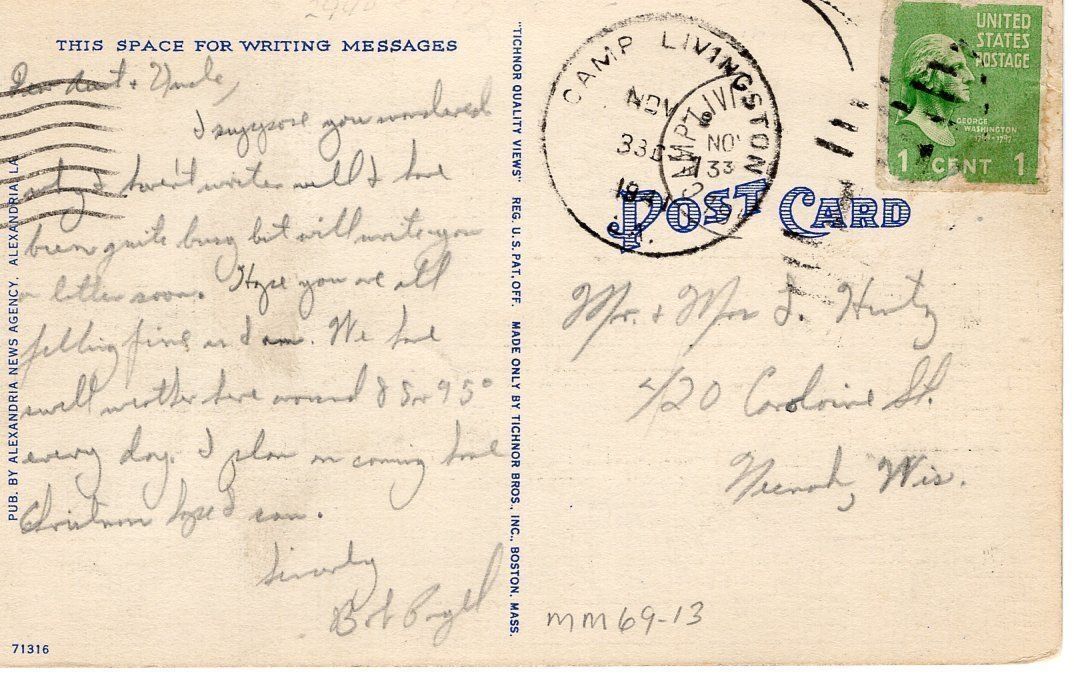 THIS SPACE FOR WRITING MESSAGES
Dear Aunt + Uncle,
I suppose you wondered
why I havn't writen well I have
been quite busy but will write you
a letter soon. Hope you are all
felling fine as I am. We have
swell weather here around 85 or 95°
every day. I plan on coming home
Christmas hope I can.
Sincerely
Bob
71316
PUB. BY ALEXANDRIA NEWS AGENCY, ALEXANDRIA, LA
"TICHNOR QUALITY VIEWS" REG. U. S. PAT. OFF. MADE ONLY BY TICHNOR BROS., INC., BOSTON, MASS.
CAMP LIVINGSTON
NOV
1941
LA.
NOV
UNITED
STATES
POSTAGE
GEORGE
WASHINGTON
1789-1797
1 CENT 1
POST CARD
Mr. + Mrs Hintz
420 St.
Neenah, Wis.
MM69-13